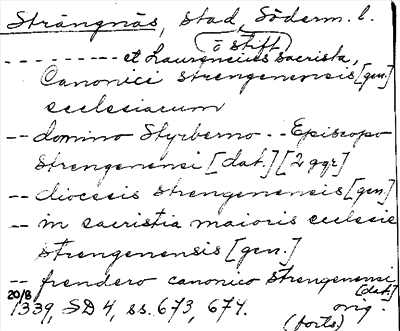 Strängnäs, stad, Söderm. l.
o stift
- - - - - - - - et Laurencius sacrista,
Canonici strengenensis [gen.]
ecclesiarum
-- domino Styrberno - - Episcopo
Strengenensi [dat.] [2 ggr]
-- diocesis strengenensis [gen.]
-- in sacristia maioris ecclesie
strengenensis [gen.]
-- frendero canonico strengenensi
[dat.]
20/8
1339, SD 4, ss. 673, 674. orig.
(forts)